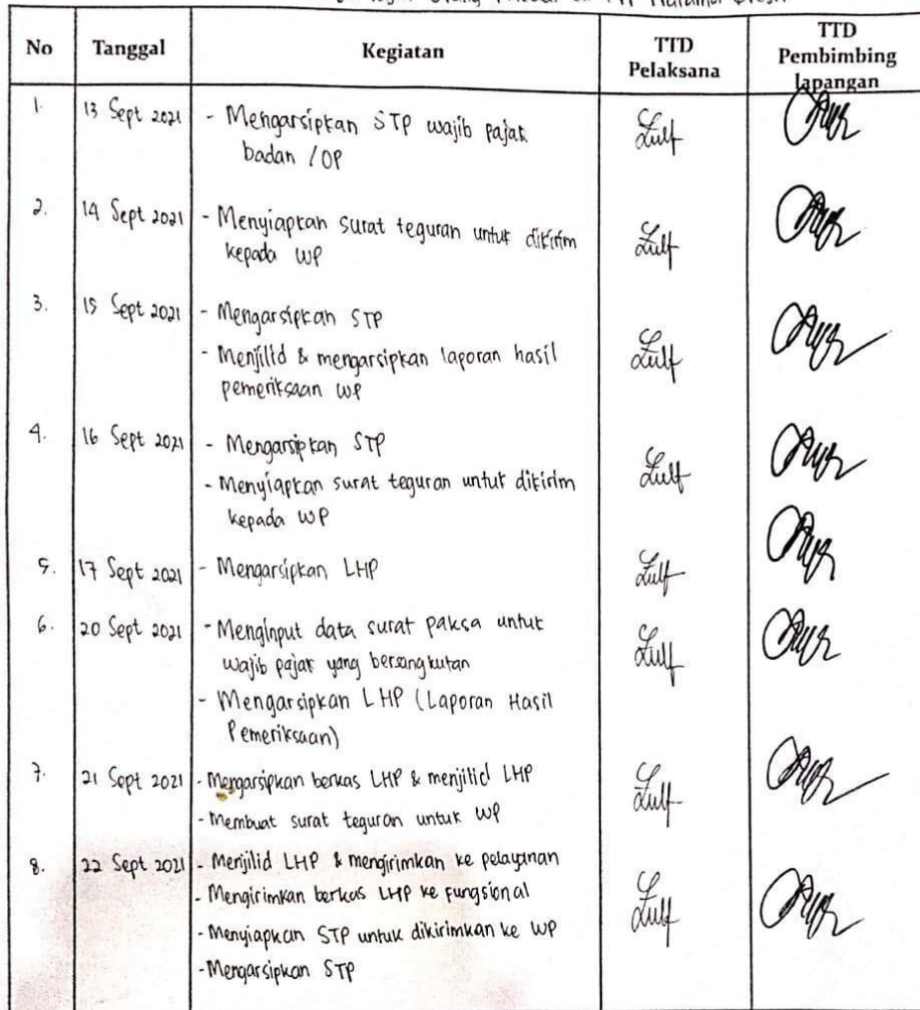 No Tanggal Kegiatan TTD Pelaksana TTD Pembimbing lapangan
1. 13 Sept 2021 - Mengarsipkan STP wajib pajak
badan / OP
2. 14 Sept 2021 - Menyiapkan surat teguran untuk dikirim
kepada WP
3. 15 Sept 2021 - Mengarsipkan STP
- Menjilid & mengarsipkan laporan hasil
pemeriksaan WP
4. 16 Sept 2021 - Mengarsipkan STP
- Menyiapkan surat teguran untuk dikirim
kepada WP
5. 17 Sept 2021 - Mengarsipkan LHP
6. 20 Sept 2021 - Menginput data surat paksa untuk
wajib pajak yang bersangkutan
- Mengarsipkan LHP (Laporan Hasil
Pemeriksaan)
7. 21 Sept 2021 - Mengarsipkan berkas LHP & menjilid LHP
- Membuat surat teguran untuk WP
8. 22 Sept 2021 - Menjilid LHP & mengirimkan ke pelayanan
- Mengirimkan berkas LHP ke fungsional
- Menyiapkan STP untuk dikirimkan ke WP
- Mengarsipkan STP